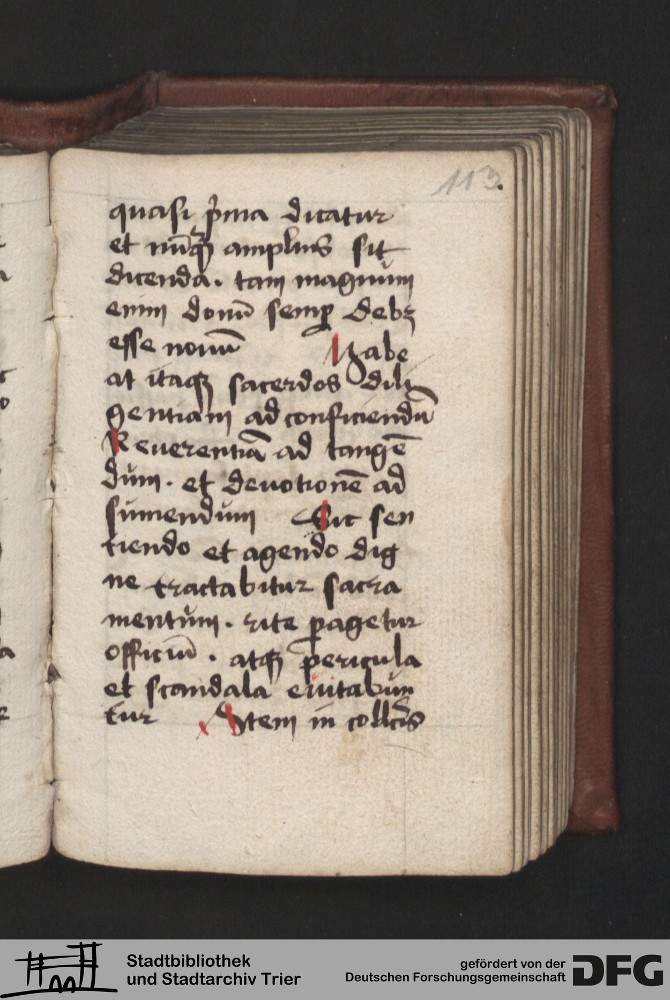 113.
quasi p̄ma dicatur
et nūqꝫ amplius sit
dicenda. tam magnum
enim donū semꝑ debꝫ
esse nouū Habe
at itaqꝫ sacerdos dili
gentiam ad conficiendū
Reuerentiā ad tangē
dum. et deuotionē ad
sumendum Sic sen
tiendo et agendo dig
ne tractabitur sacra
mentum. rite ꝑagetur
officiū. atqꝫ pericula
et scandala euitabun
tur Item in collc̄is
Stadtbibliothek
und Stadtarchiv Trier
gefördert von der
Deutschen Forschungsgemeinschaft
DFG